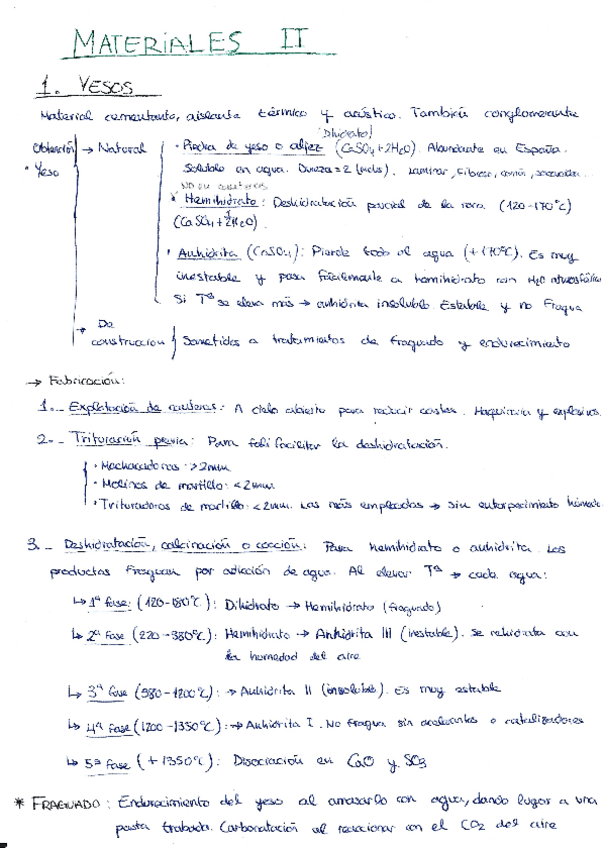 MATERIALES II
1. YESOS
Material cementante, aislante térmico y acústico. También conglomerante
Dihidrato
Obtención → Natural
· Piedra de yeso o aljez (CaSO4+2H2O) Abundante en España.
· Yeso
Soluble en agua. Dureza=2 (Mohs). Laminar, fibroso, común,
NO en canteras
* Hemihidrato: Deshidratación parcial de la roca (120-170°C)
(CaSO4+½H2O)
· Anhidrita (CaSO4): Pierde todo el agua (+170°C). Es muy
inestable y pasa fácilmente a hemihidrato con H2O atmosférica
Si Tª se eleva más → anhidrita insoluble. Estable y no fragua
→ De construcción
Sometidos a tratamientos de fraguado y endurecimiento
→ Fabricación:
1.- Explotación de canteras: A cielo abierto para reducir costes. Maquinaria y explosivos.
2.- Trituración previa: Para facilitar la deshidratación.
· Machacadoras: >2mm
· Molinos de martillo: <2mm
· Trituradoras de martillo: <2mm. Las más empleadas → sin entorpecimiento
3.- Deshidratación, calcinación o cocción: Pasa hemihidrato o anhidrita. Los
productos fraguan por adición de agua. Al elevar Tª → cede agua:
↳ 1ª fase: (120-180°C): Dihidrato → Hemihidrato (fraguado)
↳ 2ª Fase (220-380°C): Hemihidrato → Anhidrita III (inestable). Se rehidrata con
la humedad del aire
↳ 3ª fase (380-1200°C): → Anhidrita II (insoluble). Es muy estable
↳ 4ª fase (1200-1350°C): → Anhidrita I. No fragua sin acelerantes o catalizadores
↳ 5ª fase (+1350°C): Disociación en CaO y SO3
* FRAGUADO: Endurecimiento del yeso al amasarlo con agua, dando lugar a una
pasta trabada. Carbonatación al reaccionar con el CO2 del aire